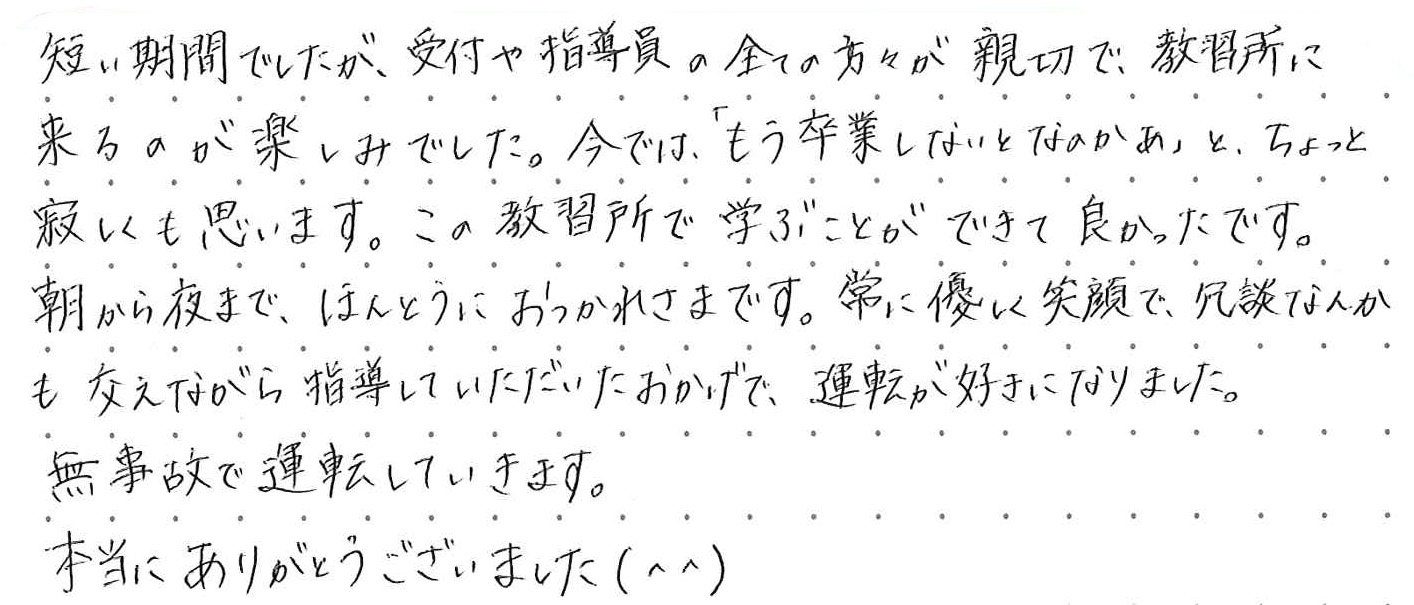 短い期間でしたが、受付や指導員の全ての方々が親切で、教習所に
来るのが楽しみでした。今では、「もう卒業しないとなのかあ」と、ちょっと
寂しくも思います。この教習所で学ぶことができて良かったです。
朝から夜まで、ほんとうにおつかれさまです。常に優しく笑顔で、冗談なんか
も交えながら指導していただいたおかげで、運転が好きになりました。
無事故で運転していきます。
本当にありがとうございました(^^)